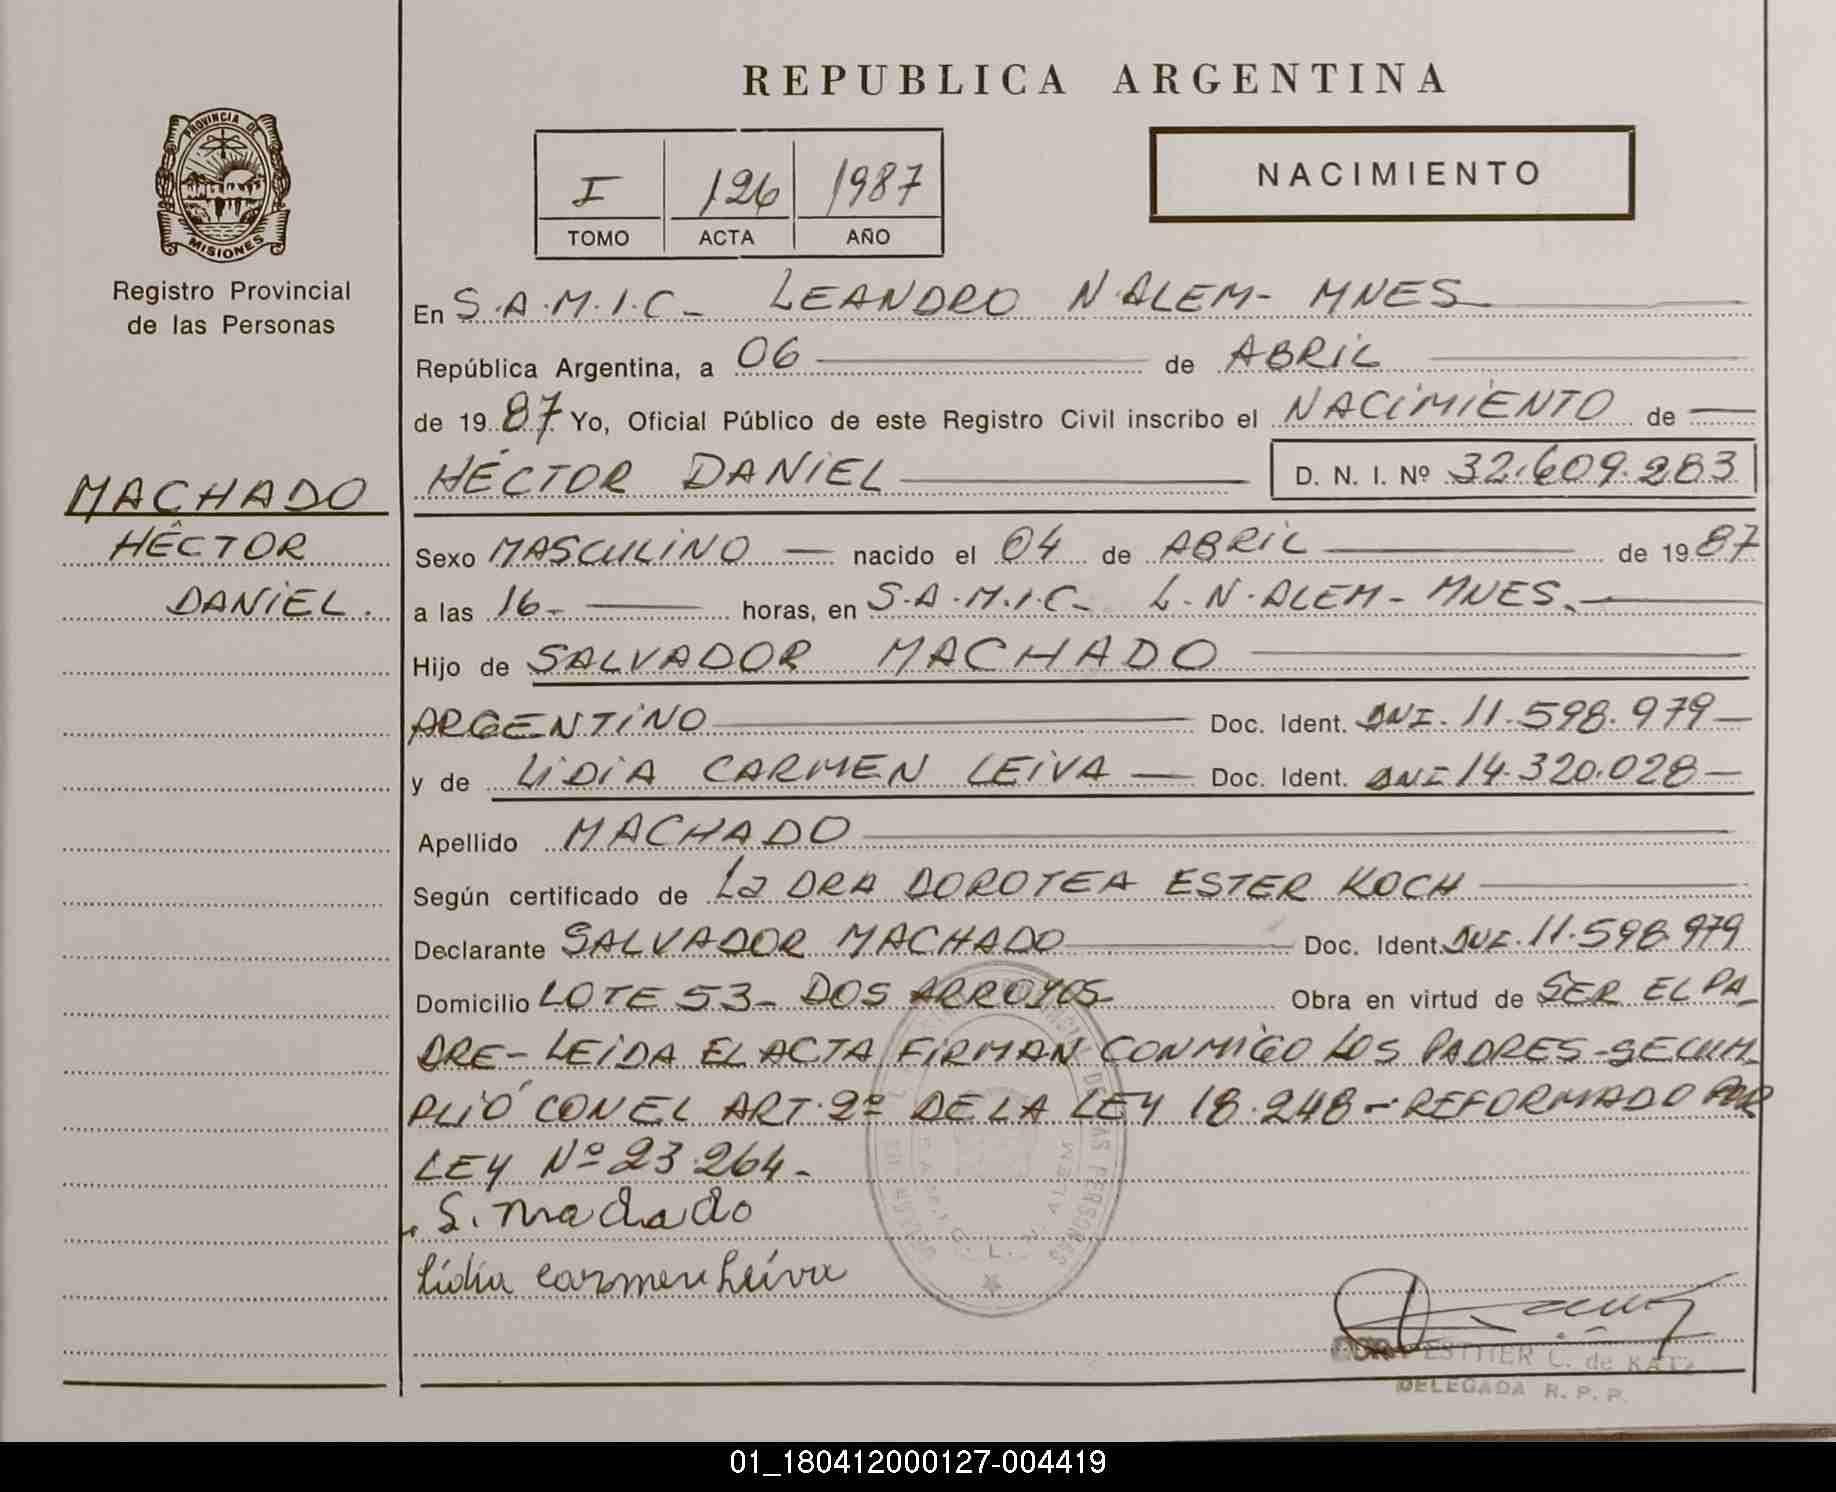 REPUBLICA ARGENTINA
PROVINCIA DE
MISIONES
Registro Provincial
de las Personas
I 126 1987
TOMO ACTA AÑO
NACIMIENTO
En S.A.M.I.C- LEANDRO N.ALEM- MNES
República Argentina, a 06 de ABRIL
de 19 87 Yo, Oficial Público de este Registro Civil inscribo el NACIMIENTO de
HÉCTOR DANIEL D. N. I. Nº 32.609.283
MACHADO
HÉCTOR
DANIEL.
Sexo MASCULINO nacido el 04 de ABRIL de 19 87
a las 16- horas, en S.A.M.I.C- L.N.ALEM- MNES.
Hijo de SALVADOR MACHADO
ARGENTINO Doc. Ident. DNI. 11.598.979
y de LIDIA CARMEN LEIVA Doc. Ident. DNI 14.320.028
Apellido MACHADO
Según certificado de La DRA DOROTEA ESTER KOCH
Declarante SALVADOR MACHADO Doc. Ident. DNI. 11.598.979
Domicilio LOTE 53- DOS ARROYOS Obra en virtud de SER EL PA-
DRE- LEIDA EL ACTA FIRMAN CONMIGO LOS PADRES-SECUM-
PLIÓ CON EL ART. 2º DE LA LEY 18.248- REFORMADO POR
LEY Nº 23.264-
S. Machado
Lidia Carmen Leiva
DE LAS PERSONAS
L. N. ALEM
ESTHER C. de KATZ
DELEGADA R. P. P.
01_180412000127-004419